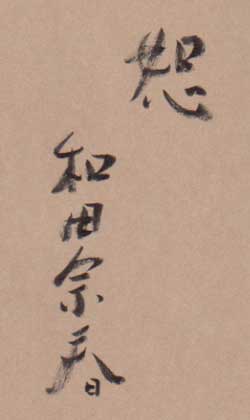 恕
和田宗春